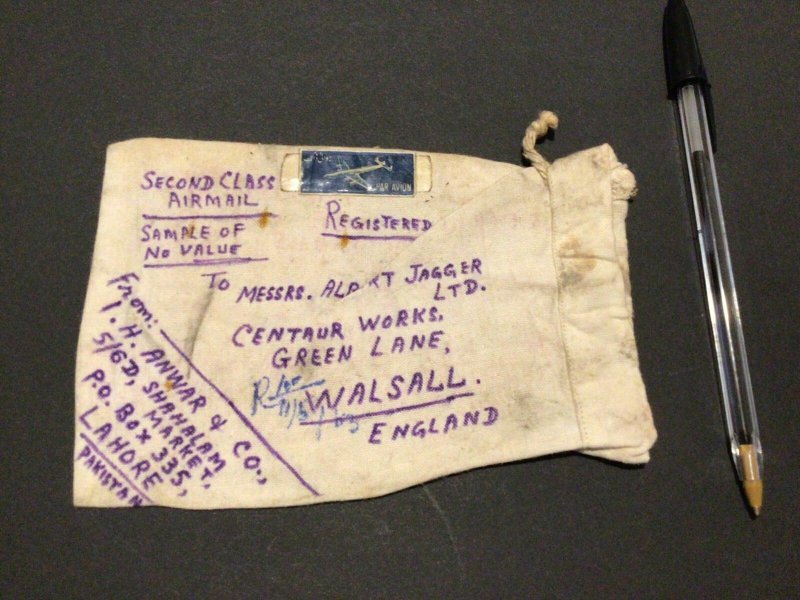 SECOND CLASS
AIRMAIL
SAMPLE OF
NO VALUE
PAR AVION
REGISTERED
TO
MESSRS. JAGGER
LTD.
CENTAUR WORKS,
GREEN LANE,
WALSALL.
ENGLAND
From:
I. H. ANWAR & CO.,
5/6D, SHAHALAM
MARKET,
P.O. BOX 335,
LAHORE
PAKISTAN